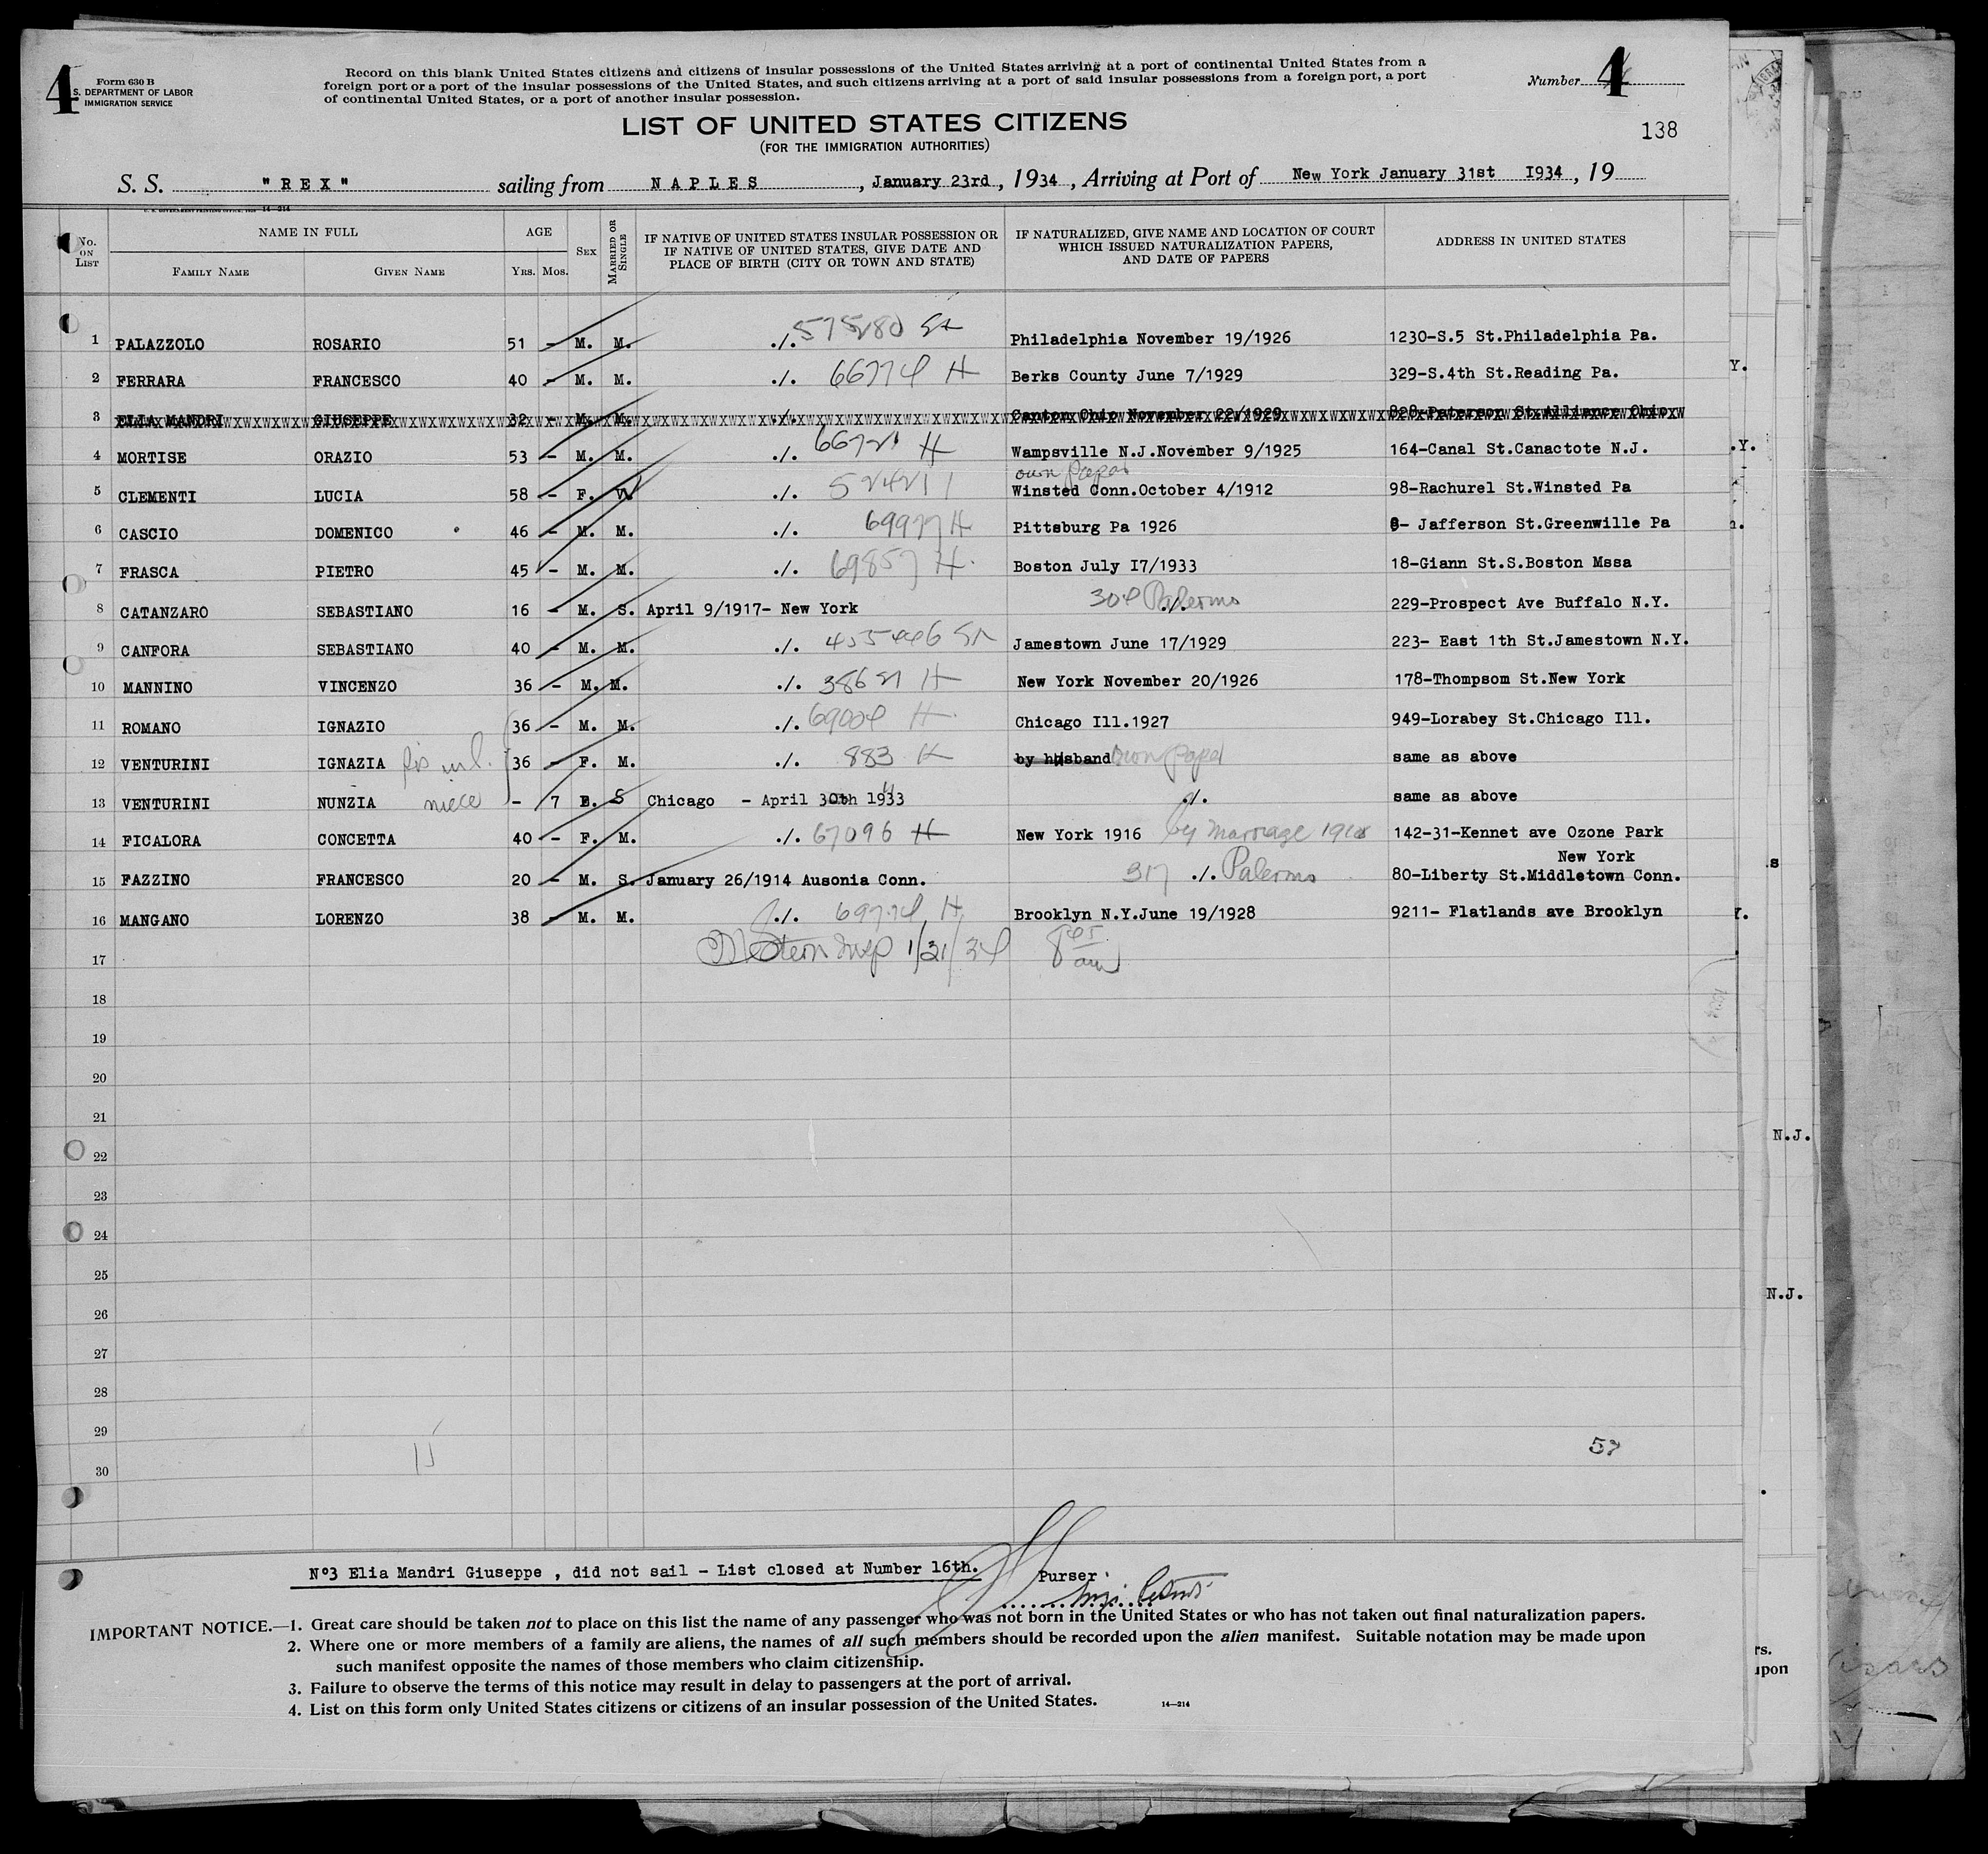 4
Form 630 B
S. DEPARTMENT OF LABOR
IMMIGRATION SERVICE
Record on this blank United States citizens and citizens of insular possessions of the United States arriving at a port of continental United States from a
foreign port or a port of the insular possessions of the United States, and such citizens arriving at a port of said insular possessions from a foreign port, a port
of continental United States, or a port of another insular possession.
Number 4
138
LIST OF UNITED STATES CITIZENS
(FOR THE IMMIGRATION AUTHORITIES)
S. S. "REX" sailing from NAPLES, January 23rd, 1934, Arriving at Port of New York January 31st 1934, 19
No. ON LIST
NAME IN FULL
FAMILY NAME
GIVEN NAME
AGE
YRS. MOS.
SEX
MARRIED OR SINGLE
IF NATIVE OF UNITED STATES INSULAR POSSESSION OR
IF NATIVE OF UNITED STATES, GIVE DATE AND
PLACE OF BIRTH (CITY OR TOWN AND STATE)
IF NATURALIZED, GIVE NAME AND LOCATION OF COURT
WHICH ISSUED NATURALIZATION PAPERS,
AND DATE OF PAPERS
ADDRESS IN UNITED STATES
1 PALAZZOLO ROSARIO 51 - M. M. ./. 575280 Philadelphia November 19/1926 1230-S.5 St.Philadelphia Pa.
2 FERRARA FRANCESCO 40 - M. M. ./. 66774 H Berks County June 7/1929 329-S.4th St.Reading Pa.
3 ELIA MANDRI GIUSEPPE 32 - M. M. ./. Canton Ohio November 22/1929 828-Paterson St.Alliance Ohio
4 MORTISE ORAZIO 53 - M. M. ./. H Wampsville N.J.November 9/1925 164-Canal St.Canactote N.J.
own papers
5 CLEMENTI LUCIA 58 - F. W. ./. Winsted Conn.October 4/1912 98-Rachurel St.Winsted Pa
6 CASCIO DOMENICO 46 - M. M. ./. 69977 H Pittsburg Pa 1926 8- Jafferson St.Greenwille Pa
7 FRASCA PIETRO 45 - M. M. ./. 69857 H. Boston July I7/1933 18-Giann St.S.Boston Mssa
8 CATANZARO SEBASTIANO 16 - M. S. April 9/1917- New York 304 Palermo ./. 229-Prospect Ave Buffalo N.Y.
9 CANFORA SEBASTIANO 40 - M. M. ./. Jamestown June 17/1929 223- East 1th St.Jamestown N.Y.
10 MANNINO VINCENZO 36 - M. M. ./. H New York November 20/1926 178-Thompsom St.New York
11 ROMANO IGNAZIO 36 - M. M. ./. 69004 H Chicago Ill.1927 949-Lorabey St.Chicago Ill.
12 VENTURINI IGNAZIA 36 - F. M. ./. 883 by husband own paper same as above
13 VENTURINI NUNZIA niece - 7 S Chicago - April 30th 1933 ./. same as above
14 FICALORA CONCETTA 40 - F. M. ./. 67096 H New York 1916 by marriage 142-31-Kennet ave Ozone Park
New York
15 FAZZINO FRANCESCO 20 - M. S. January 26/1914 Ausonia Conn. 317 ./. Palermo 80-Liberty St.Middletown Conn.
16 MANGANO LORENZO 38 - M. M. ./. 69774 H Brooklyn N.Y.June 19/1928 9211- Flatlands ave Brooklyn
17 Stern Insp 1/31/34 am
18
19
20
21
22
23
24
25
26
27
28
29
30
57
N°3 Elia Mandri Giuseppe , did not sail - List closed at Number 16th.
Purser
IMPORTANT NOTICE.—1. Great care should be taken not to place on this list the name of any passenger who was not born in the United States or who has not taken out final naturalization papers.
2. Where one or more members of a family are aliens, the names of all such members should be recorded upon the alien manifest. Suitable notation may be made upon
such manifest opposite the names of those members who claim citizenship.
3. Failure to observe the terms of this notice may result in delay to passengers at the port of arrival.
4. List on this form only United States citizens or citizens of an insular possession of the United States.
14—214
N.J.
N.J.